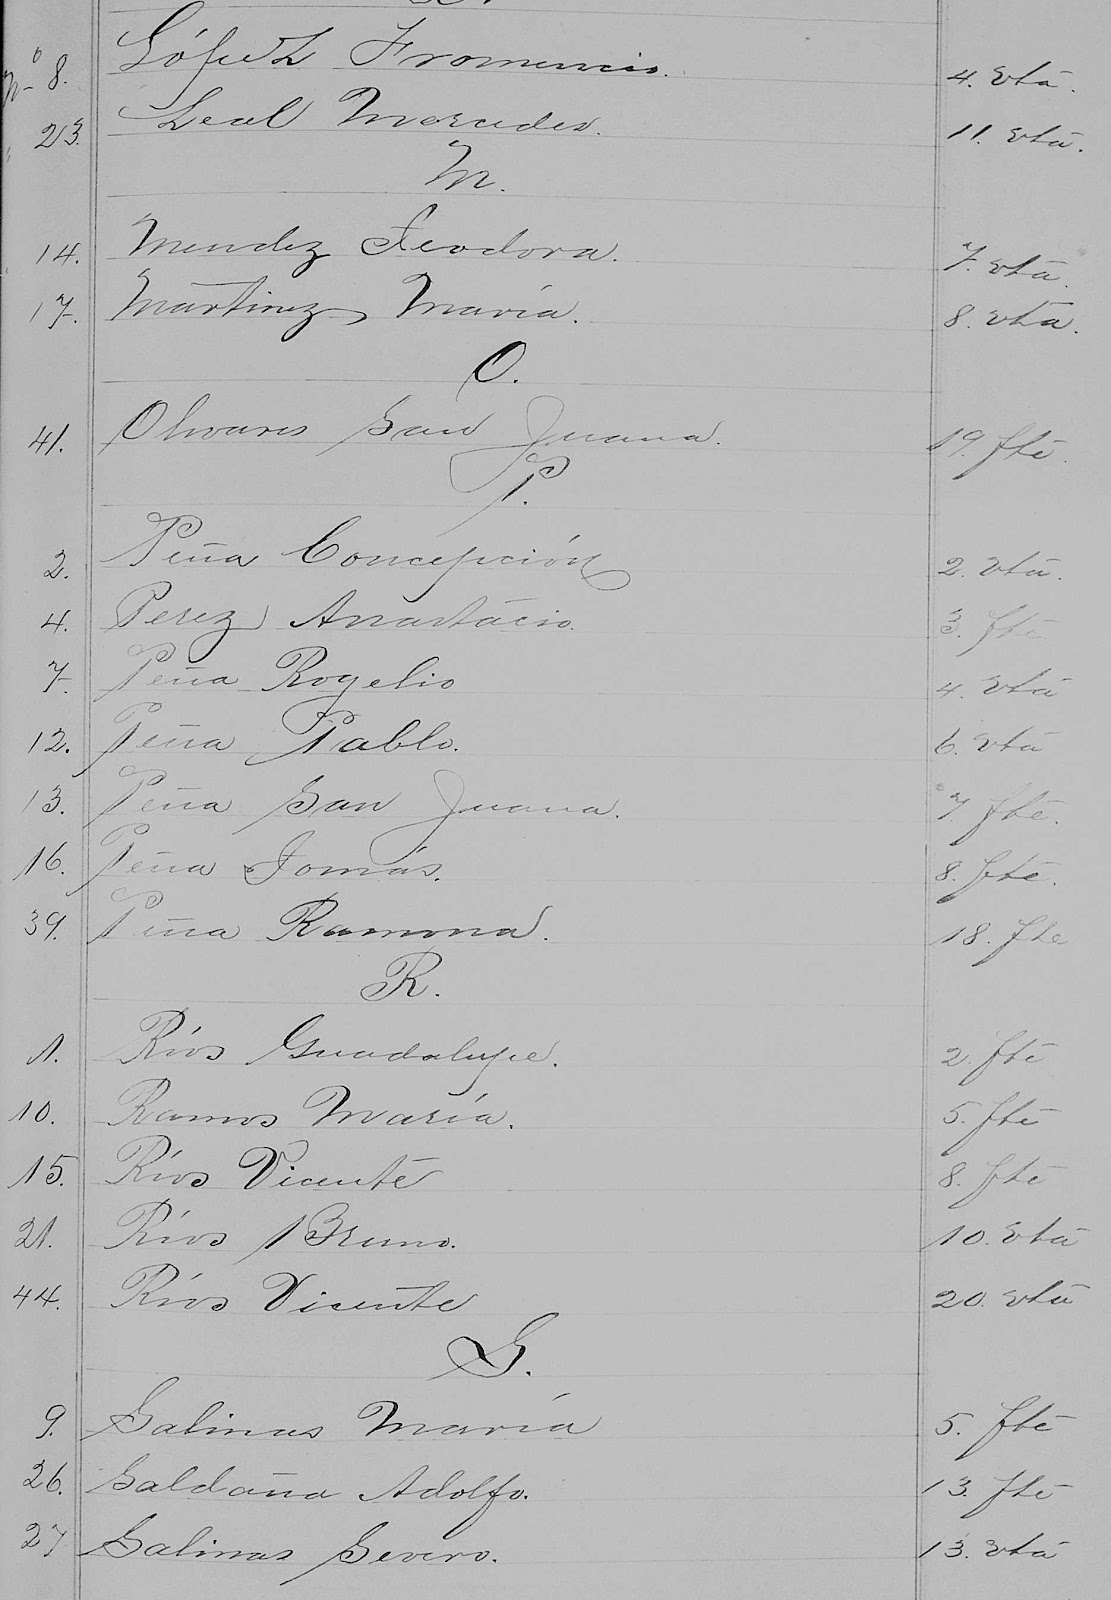 Nº 8. López Fromencio. 4. vtā.
23. Leal Mercedes. 11. vtā.
M.
14. Mendez Teodora. 7. vtā.
17. Martinez María. 8. vtā.
O.
41. Olivares San Juana. 19. ftē.
P.
2. Peña Concepción 2. vtā.
4. Perez Anastácio. 3. ftē
7. Peña Rogelio 4. vtā
12. Peña Pablo. 6. vtā
13. Peña San Juana. 7. ftē.
16. Peña Tomás. 8. ftē.
39. Piña Ramona. 18. fte
R.
1. Ríos Guadalupe. 2. ftē
10. Ramos María. 5. ftē
15. Ríos Vicente 8. ftē
21. Ríos Bruno. 10. vtā
44. Ríos Vicente 20. vtā
S.
9. Salinas María 5. ftē
26. Saldaña Adolfo. 13. ftē
27 Salinas Severo. 13. vtā